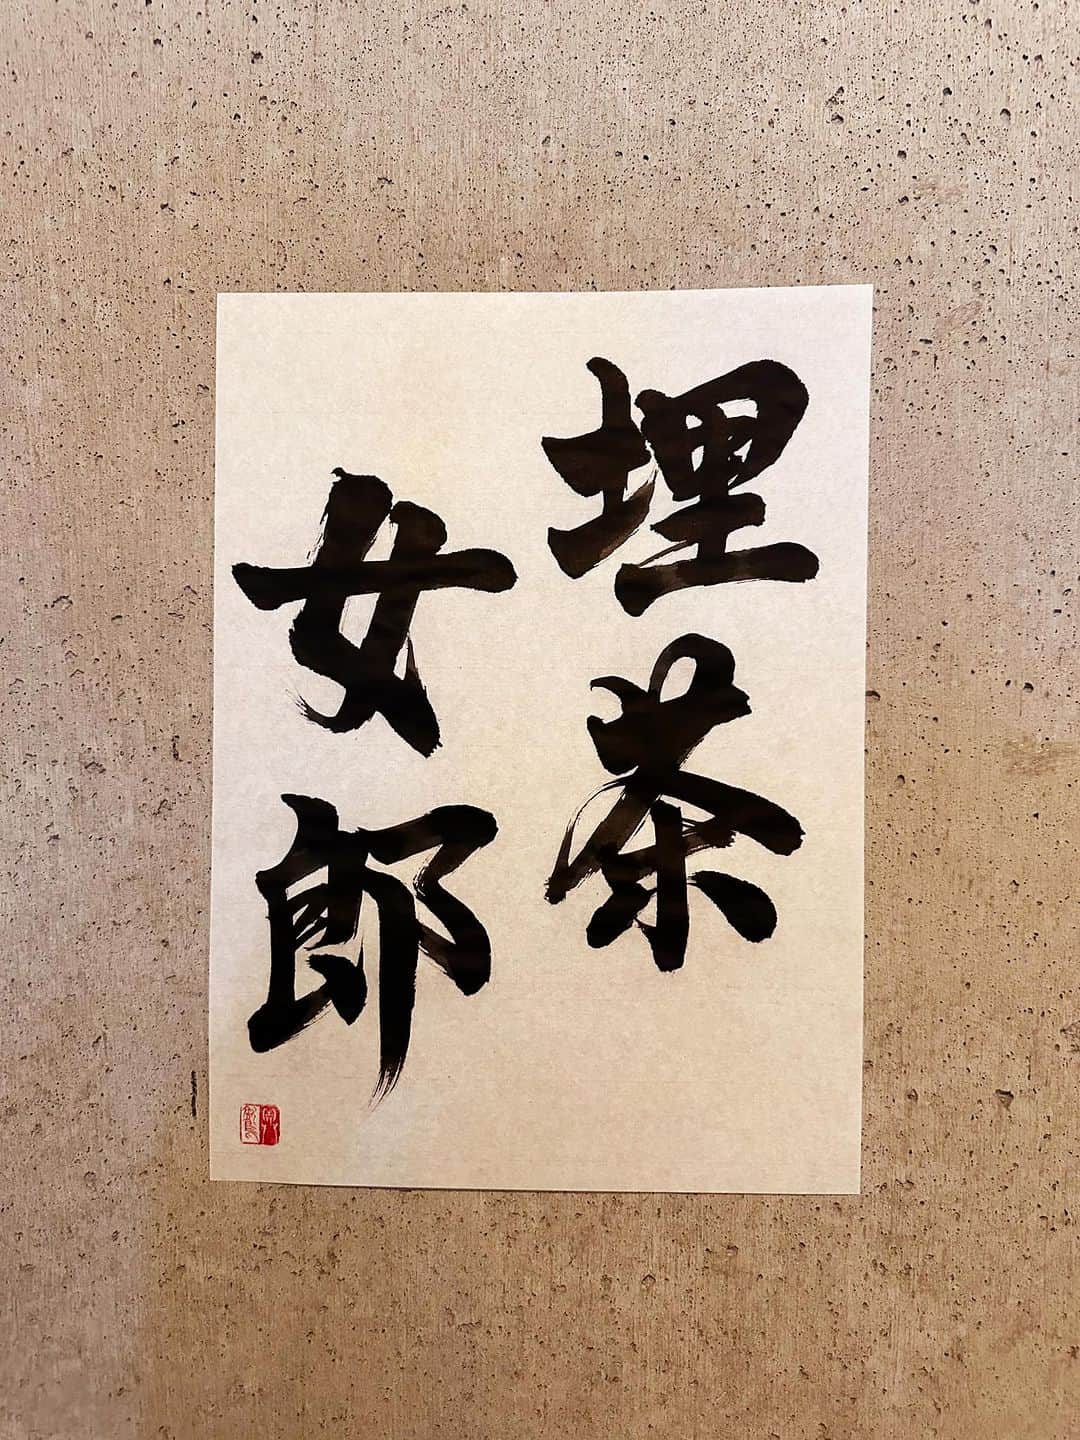 埋茶
女郎